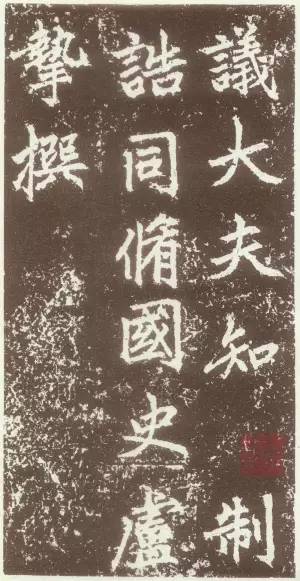 議大夫知制
誥同脩國史盧
摯撰